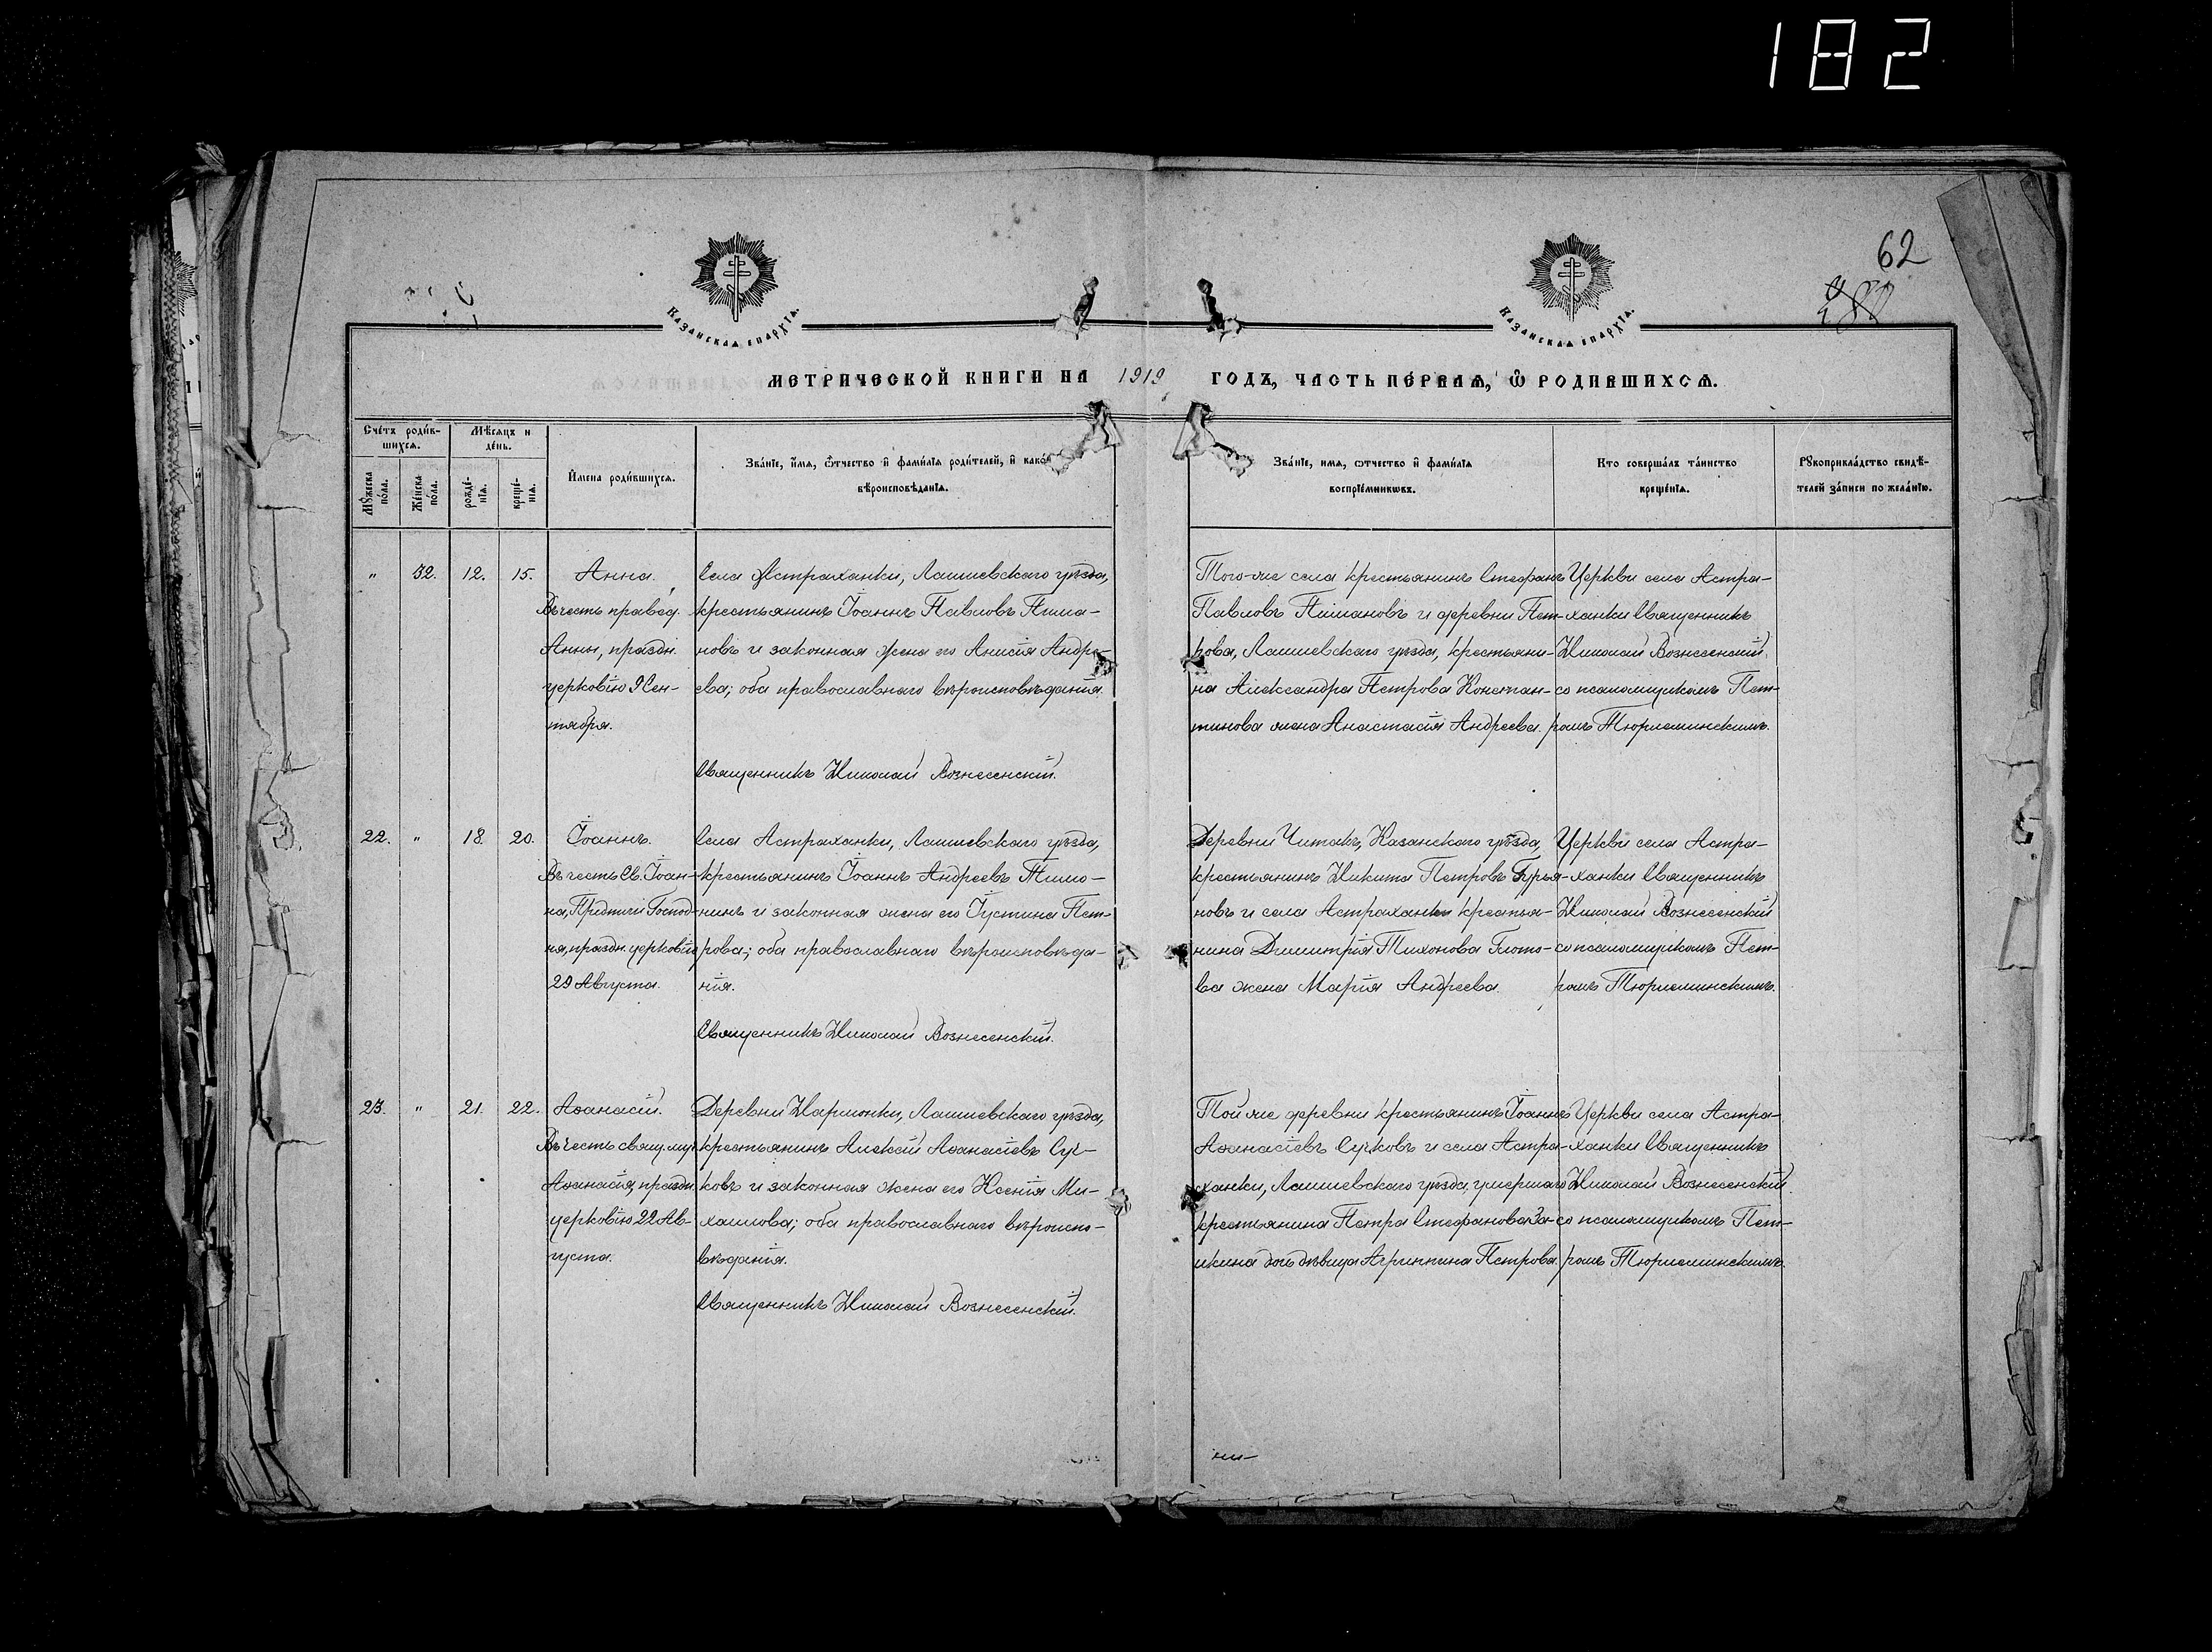 182
62
Казанская епархїа.
Казанская епархїа.
Метрической книги на 1919 годъ, часть первая, ѡ родившихся.
Сче́тъ роди́в-
шихся.
Мѣ́сяцъ и
де́нь.
Мꙋ́жеска
по́ла.
Же́нска
по́ла.
рожде́-
нїя.
креще́-
нїя.
И́мена роди́вшихся.
Зва́нїе, и́мя, ѻ́тчество и҆ фами́лїя роди́телей, и҆ како́
вѣроисповѣ́данїя.
Зва́нїе, имя, ѻтчество и҆ фами́лїя
воспрїе́мникѡвъ.
Кто соверша́лъ та́инство
креще́нїя.
Рꙋкоприкла́дство свидѣ́-
телей за́писи по жела́нїю.
" 52. 12. 15.
Анна.
Въ честь правед.
Анны, праздн.
церковію 9 Сен-
тября.
Села Астраханки, Лаишевскаго уѣзда,
крестьянинъ Іоаннъ Павловъ Пима-
новъ и законная жена его Анисія Андре-
ева; оба православнаго вѣроисповѣданія.
Священникъ Николай Вознесенскій.
Того-же села крестьянинъ Стефанъ
Павловъ Пимановъ и деревни Пет-
рова, Лаишевскаго уѣзда, крестьяни-
на Александра Петрова Констан-
тинова жена Анастасія Андреева.
Церкви села Астра-
ханки Священникъ
Николай Вознесенскій
со псаломщикомъ Пет-
ромъ Тюрнеминскимъ.
22. " 18. 20.
Іоаннъ.
Въ честь Св. Іоан-
на, Предтечи Господ-
ня, праздн. церковію
29 Августа.
Села Астраханки, Лаишевскаго уѣзда,
крестьянинъ Іоаннъ Андреевъ Тимо-
нинъ и законная жена его Іустина Пет-
рова; оба православнаго вѣроисповѣда-
нія.
Священникъ Николай Вознесенскій.
Деревни Читакъ, Казанскаго уѣзда,
крестьянинъ Никита Петровъ Бурья-
новъ и села Астраханки крестья-
нина Димитрія Тихонова Глото-
ва жена Марія Андреева.
Церкви села Астра-
ханки Священникъ
Николай Вознесенскій
со псаломщикомъ Пет-
ромъ Тюрнеминскимъ.
23. " 21. 22.
Аѳанасій.
Въ честь свящ. муч.
Аѳанасія, праздн.
церковію 22 Ав-
густа.
Деревни Нармонки, Лаишевскаго уѣзда,
крестьянинъ Алексій Аѳанасіевъ Суч-
ковъ и законная жена его Ксенія Ми-
хаилова; оба православнаго вѣроиспо-
вѣданія.
Священникъ Николай Вознесенскій.
Той же деревни крестьянинъ Іоаннъ
Аѳанасіевъ Сучковъ и села Астра-
ханки, Лаишевскаго уѣзда, умершаго
крестьянина Петра Стефанова За-
икина дочь дѣвица Агриппина Петрова.
Церкви села Астра-
ханки Священникъ
Николай Вознесенскій
со псаломщикомъ Пет-
ромъ Тюрнеминскимъ.